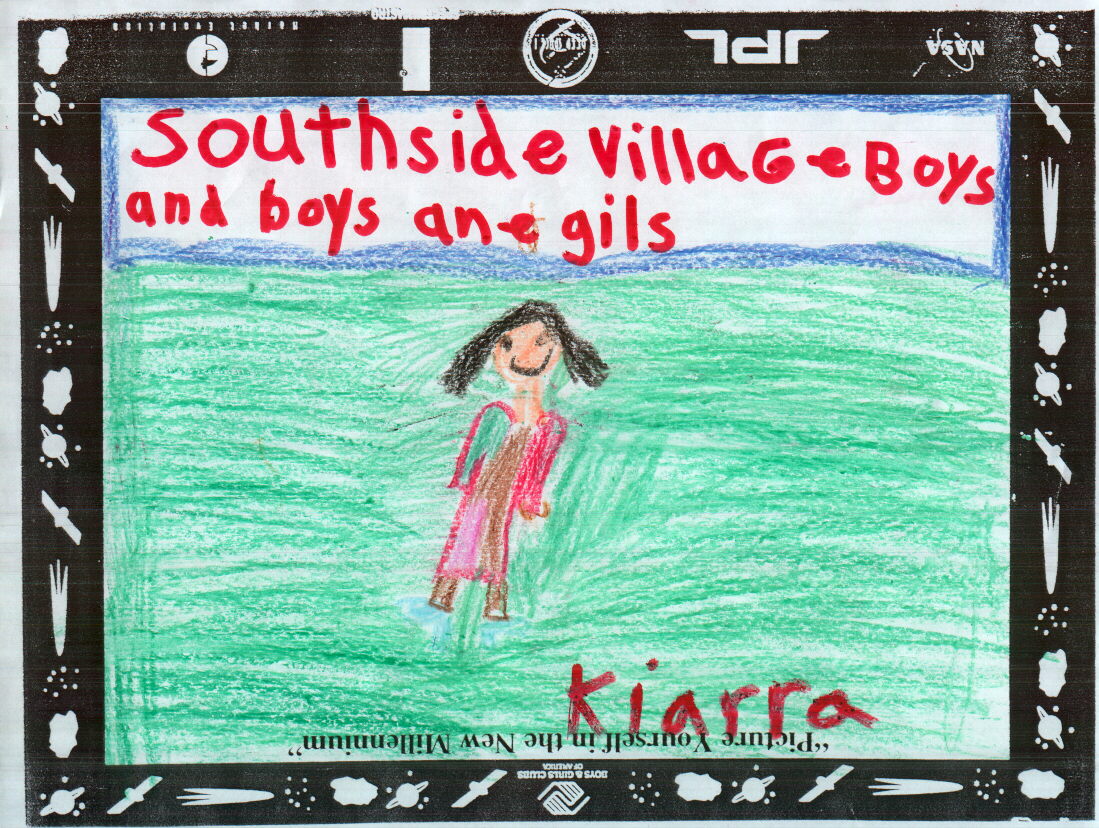 JPL
NASA
Southside VillaGe Boys
and boys ane gils
Kiarra
"Picture Yourself in the New Millennium"
BOYS & GIRLS CLUBS
OF AMERICA